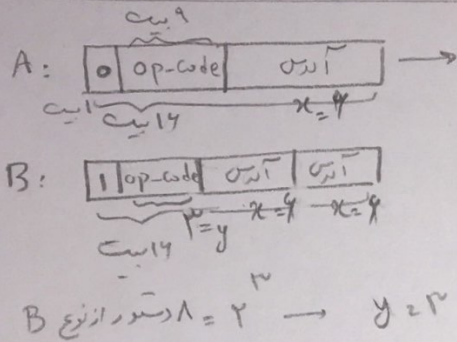 ۹ بیت
A: 0 op-code آدرس
۱ بیت ۱۶ بیت x=۶
B: 1 op-code آدرس آدرس
۳=y x=۶ x=۶
۱۶ بیت
B دستور از نوع ۸ = ۲^۳ → y=۳